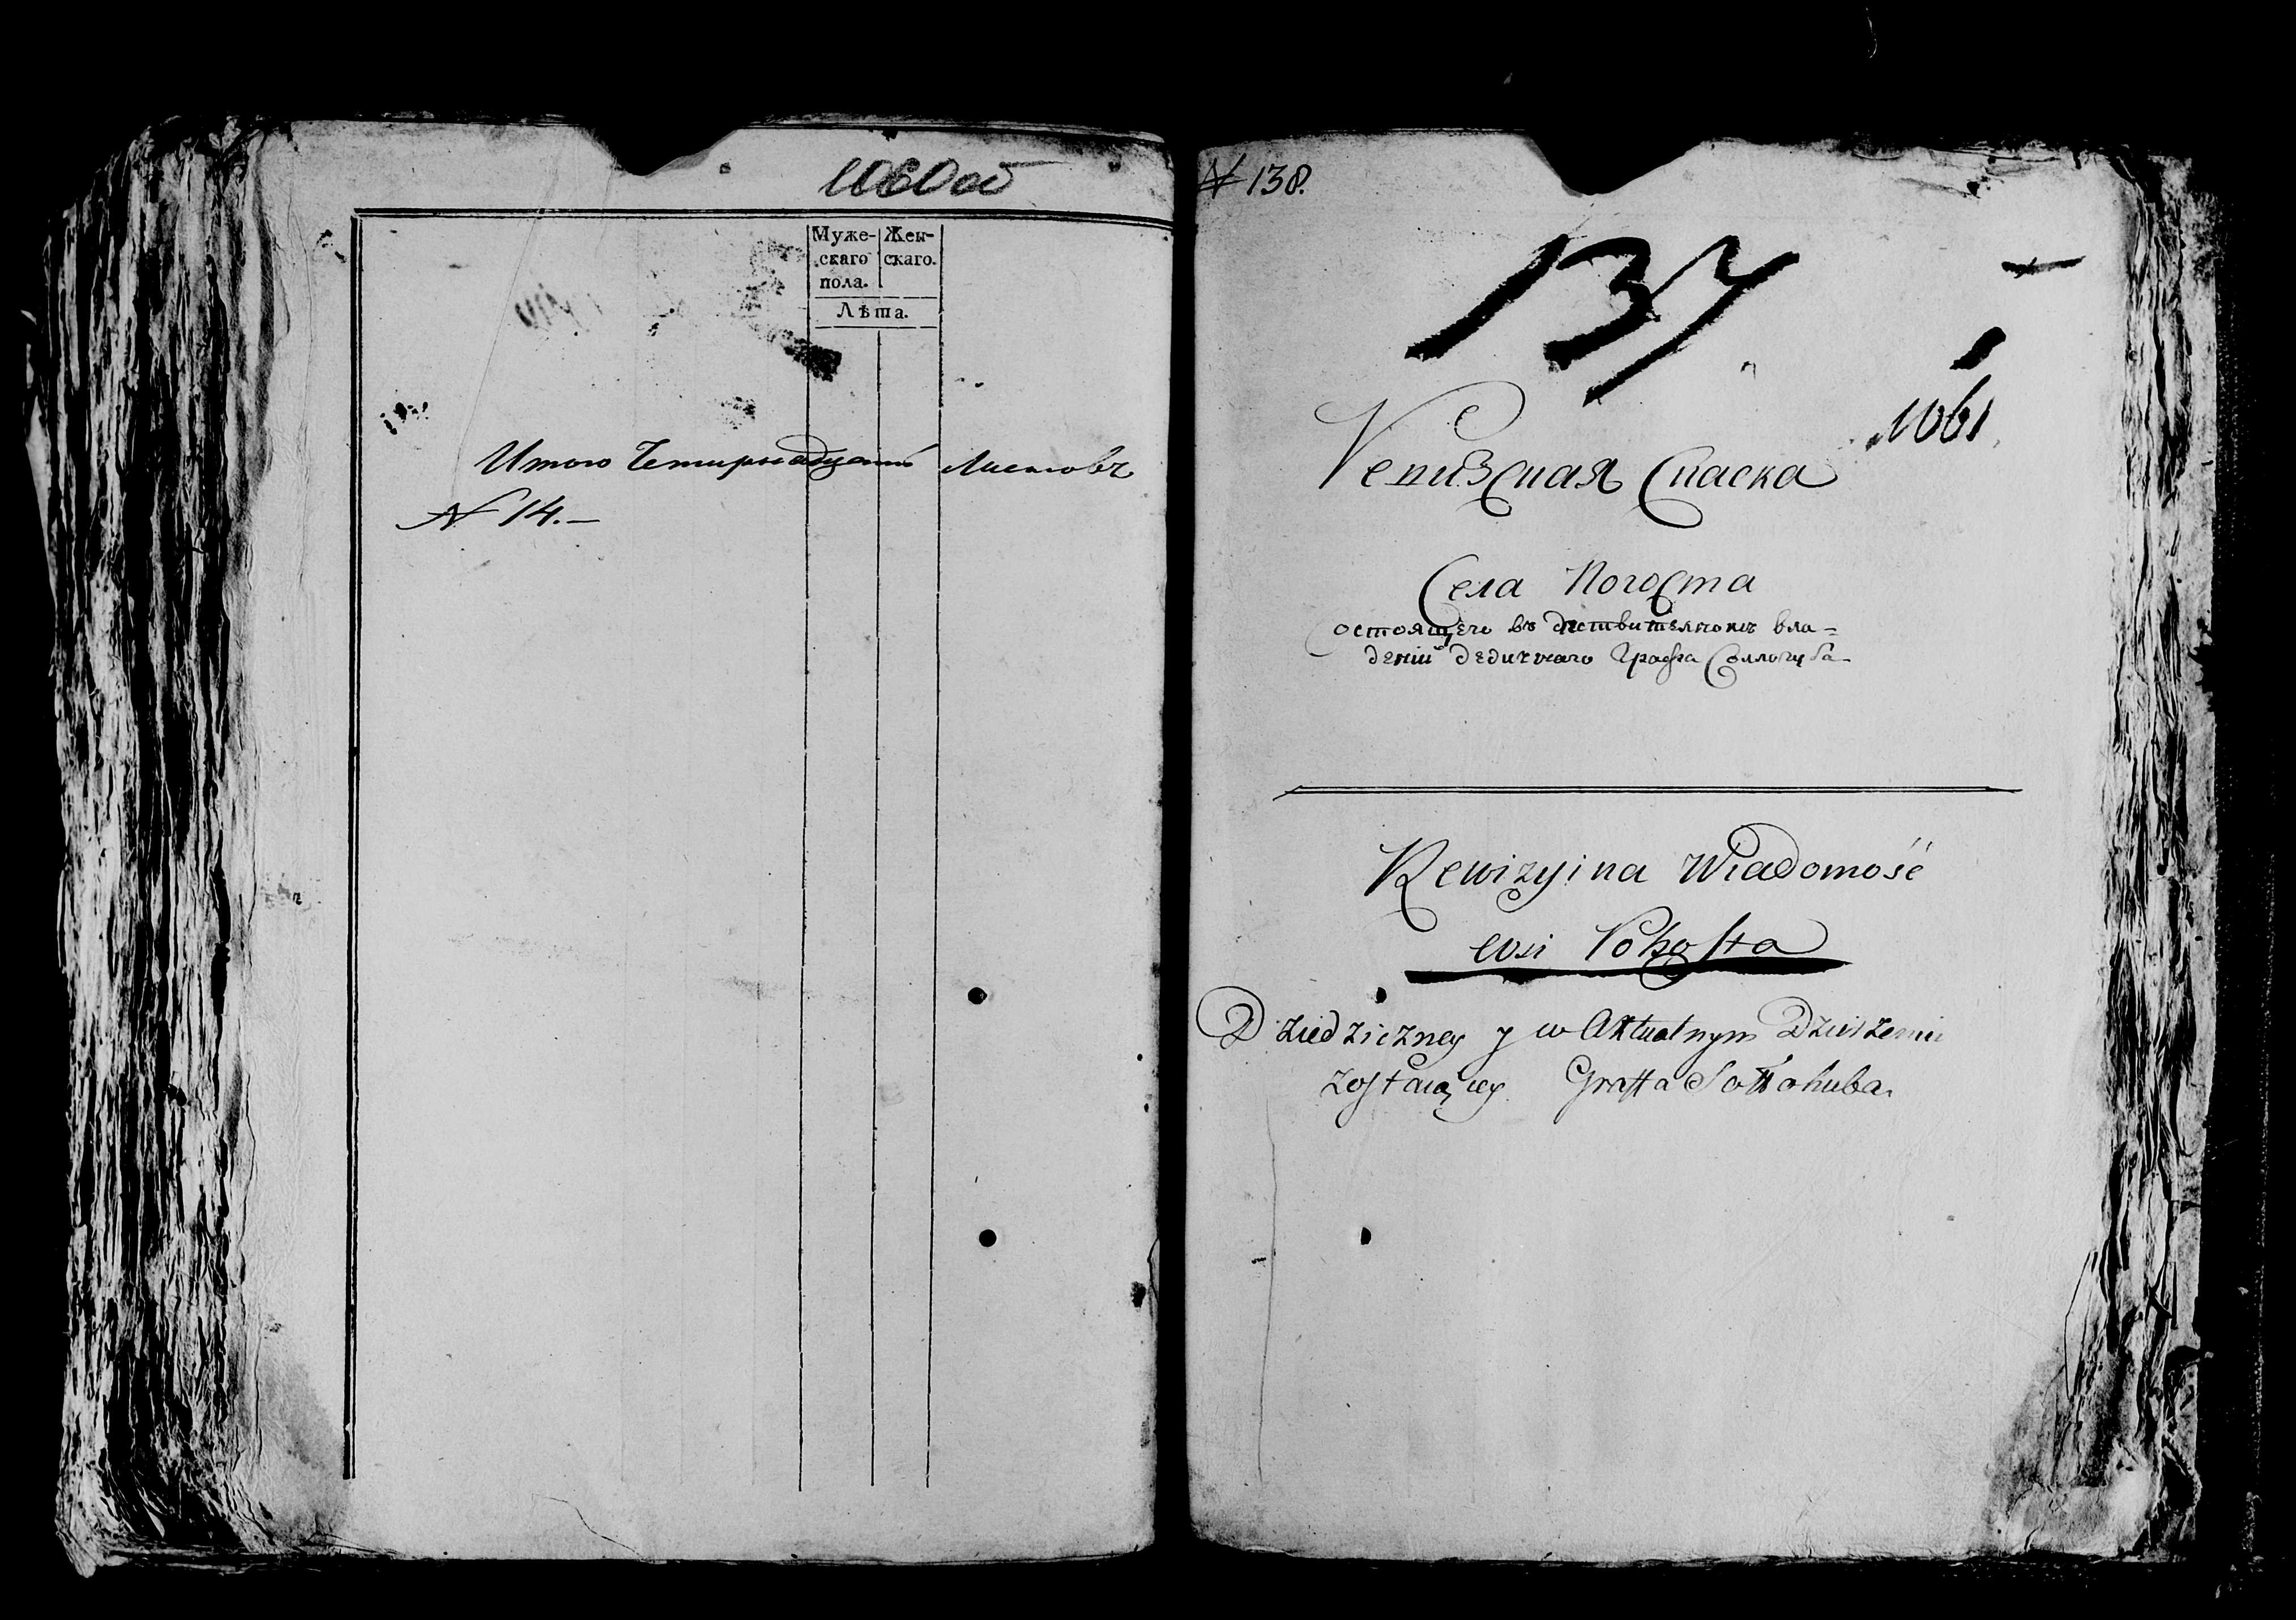 1060об
Муже-
скаго
пола.
Жен-
скаго.
Лѣта.
Итого Четирнадцать Листовъ
N 14.—
N 138.
137
1061
Ревизская Скаска
Села Погоста
состоящего въ дествителномъ вла=
деніи дедичнаго Графа Соллогуба
Rewizyina Wiadomość
wsi Pohosta
Dziedziczney y w Aktualnym Dzierżeniu
zostaiącey Graffa Sołłohuba.